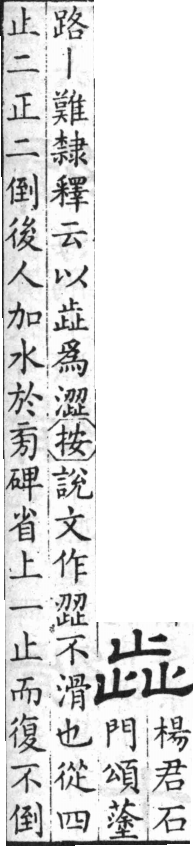 歮
楊君石
門頌塗
路丨難隸釋云以歮爲澀按說文作歰不滑也從四
止二正二倒後人加水於旁碑省上一止而復不倒